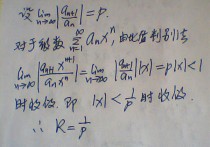 设 lim_{n→∞} |a_{n+1}/a_n| = p.
对于级数 ∑_{n=1}^{∞} a_n x^n, 由比值判别法
lim_{n→∞} |a_{n+1} x^{n+1} / a_n x^n| = lim_{n→∞} |a_{n+1}/a_n| |x| = p|x| < 1
时收敛. 即 |x| < 1/p 时收敛.
∴ R = 1/p